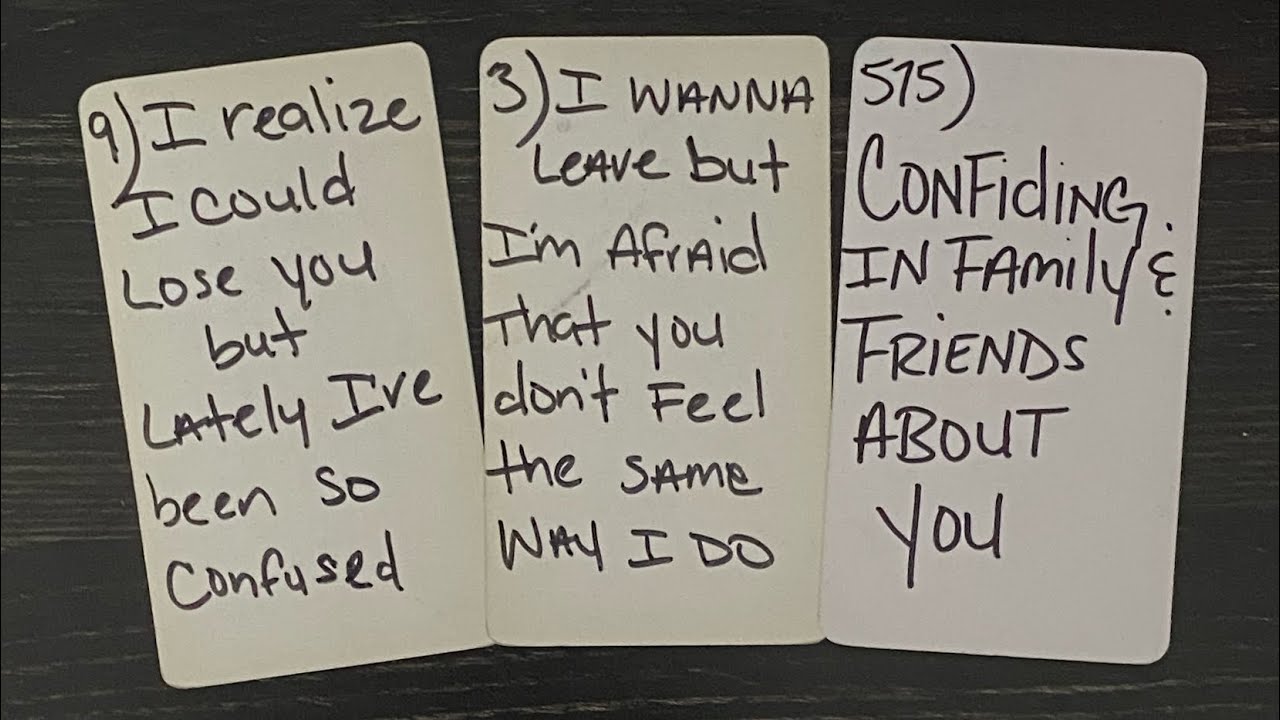 9) I realize
I could
Lose you
but
Lately I've
been so
Confused
3) I WANNA
LEAVE but
I'm AfrAID
That you
don't FEEl
the SAME
WAY I DO
575)
CONFiding
IN FAmily &
FRiENDS
ABOUT
YOU